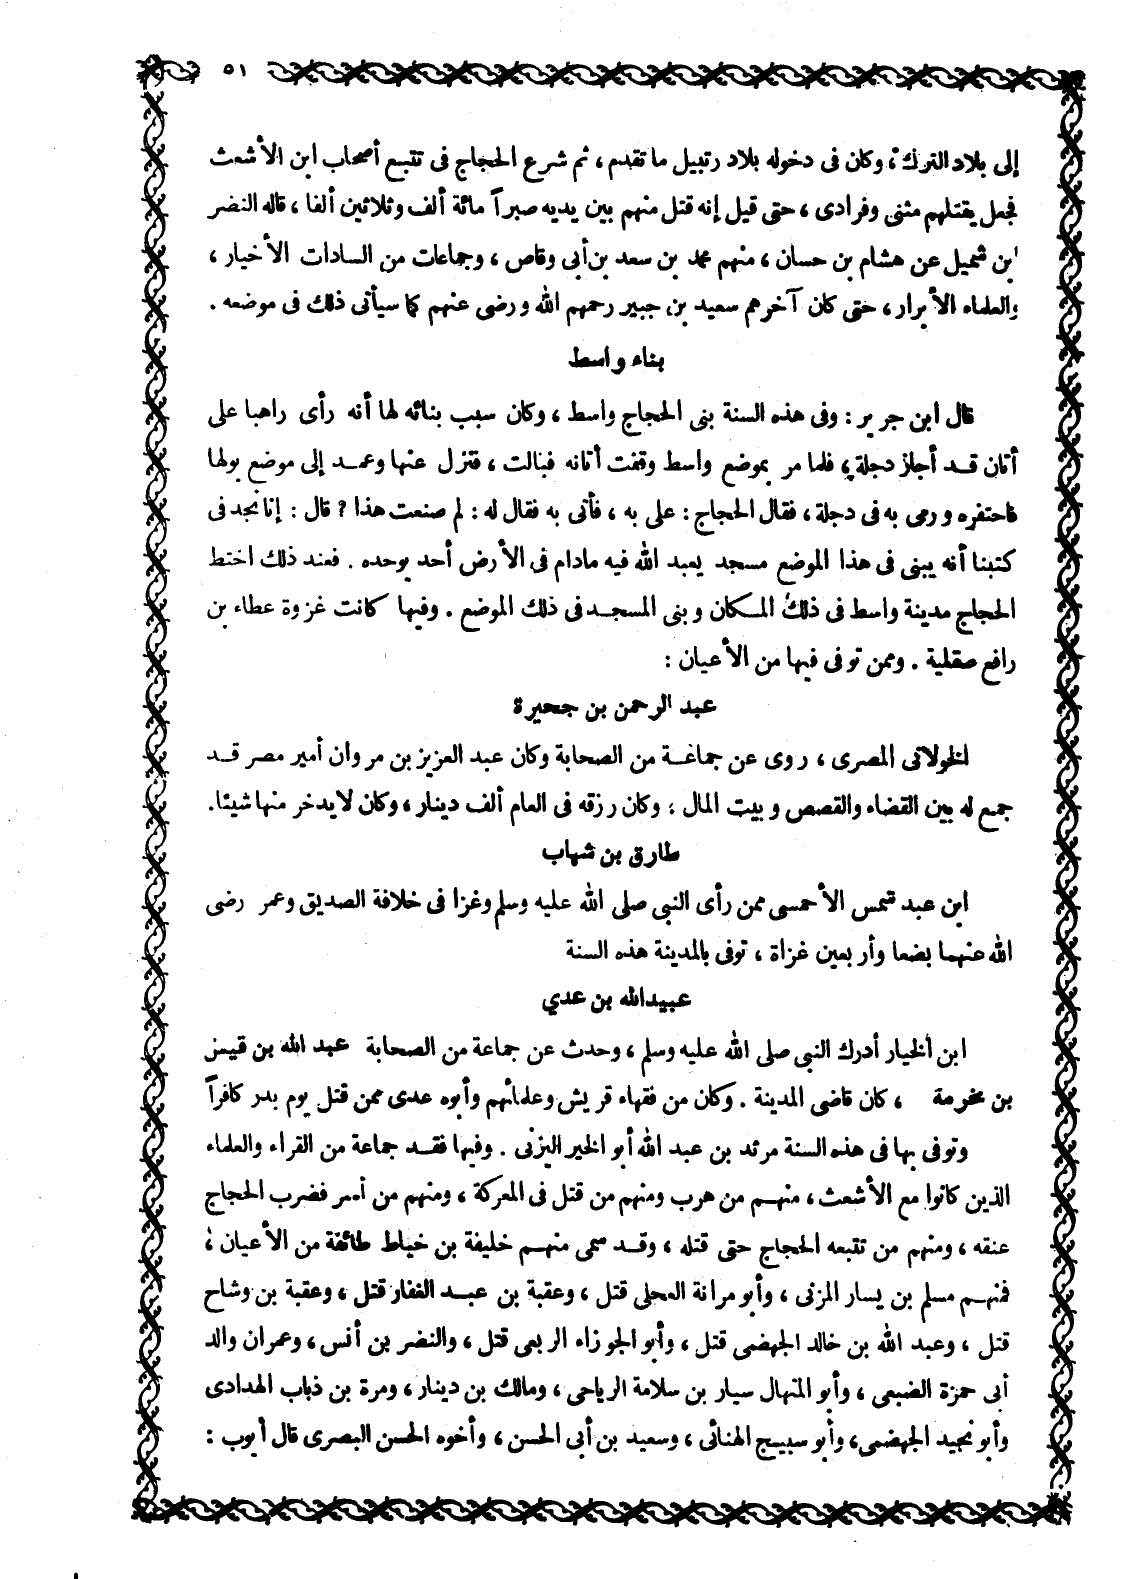 ٥١
إلى بلاد الترك، وكان فى دخوله بلاد رتبيل ما تقدم، ثم شرع الحجاج فى تتبع أصحاب ابن الأشعث
فجعل يقتلهم مثنى وفرادى، حتى قيل إنه قتل منهم بين يديه صبراً مائة ألف وثلاثين ألفا، قاله النضر
ابن شميل عن هشام بن حسان، منهم محمد بن سعد بن أبى وقاص، وجماعات من السادات الأخيار،
والعلماء الأبرار، حتى كان آخرهم سعيد بن جبير رحمهم الله ورضى عنهم كما سيأتى ذلك فى موضعه.
بناء واسط
قال ابن جرير: وفى هذه السنة بنى الحجاج واسط، وكان سبب بنائه لها أنه رأى راهبا على
أتان قد أجاز دجلة، فلما مر بموضع واسط وقفت أتانه فبالت، فنزل عنها وعمد إلى موضع بولها
فاحتفره ورمى به فى دجلة، فقال الحجاج: على به، فأتى به فقال له: لم صنعت هذا؟ قال: إنا نجد فى
كتبنا أنه يبنى فى هذا الموضع مسجد يعبد الله فيه مادام فى الأرض أحد يوحده. فعند ذلك اختط
الحجاج مدينة واسط فى ذلك المكان وبنى المسجد فى ذلك الموضع. وفيها كانت غزوة عطاء بن
رافع صقلية. وممن توفى فيها من الأعيان:
عبد الرحمن بن جحيرة
الخولانى المصرى، روى عن جماعة من الصحابة وكان عبد العزيز بن مروان أمير مصر قد
جمع له بين القضاء والقصص وبيت المال، وكان رزقه فى العام ألف دينار، وكان لا يدخر منها شيئا.
طارق بن شهاب
ابن عبد شمس الأحمسى ممن رأى النبى صلى الله عليه وسلم وغزا فى خلافة الصديق وعمر رضى
الله عنهما بضعا وأربعين غزاة، توفى بالمدينة هذه السنة
عبيدالله بن عدي
ابن الخيار أدرك النبى صلى الله عليه وسلم، وحدث عن جماعة من الصحابة عبد الله بن قيس
بن مخرمة ، كان قاضى المدينة. وكان من فقهاء قريش وعلمائهم وأبوه عدى ممن قتل يوم بدر كافراً
وتوفى بها فى هذه السنة مرثد بن عبد الله أبو الخير اليزنى. وفيها فقد جماعة من القراء والعلماء
الذين كانوا مع الأشعث، منهم من هرب ومنهم من قتل فى المعركة، ومنهم من أسر فضرب الحجاج
عنقه، ومنهم من تتبعه الحجاج حتى قتله، وقد سمى منهم خليفة بن خياط طائفة من الأعيان،
فمنهم مسلم بن يسار المزنى، وأبو مرانة العجلى قتل، وعقبة بن عبد الغفار قتل، وعقبة بن وشاح
قتل، وعبد الله بن خالد الجهضمى قتل، وأبو الجوزاء الربعى قتل، والنضر بن أنس، وعمران والد
أبى حمزة الضبعى، وأبو المنهال سيار بن سلامة الرياحى، ومالك بن دينار، ومرة بن ذباب الهدادى
وأبو نجيد الجهضمى، وأبو سبيج الهنائى، وسعيد بن أبى الحسن، وأخوه الحسن البصرى قال أيوب: